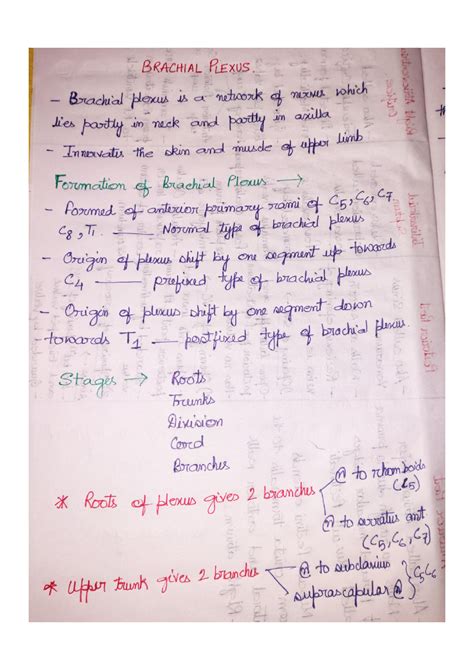 BRACHIAL PLEXUS
- Brachial plexus is a network of nerves which
lies partly in neck and partly in axilla
- Innervates the skin and muscle of upper limb
Formation of Brachial Plexus →
- Formed of anterior primary rami of C5, C6, C7
C8, T1. —— Normal type of brachial plexus
- Origin of plexus shift by one segment up towards
C4 —— prefixed type of brachial plexus
- Origin of plexus shift by one segment down
towards T1 —— postfixed type of brachial plexus.
Stages → Roots
Trunks
Division
Cord
Branches
* Roots of plexus gives 2 branches
(n) to rhomboids
(C5)
(n) to serratus ant
(C5, C6, C7)
* Upper trunk gives 2 branches
(n) to subclavius
suprascapular (n)
C5C6